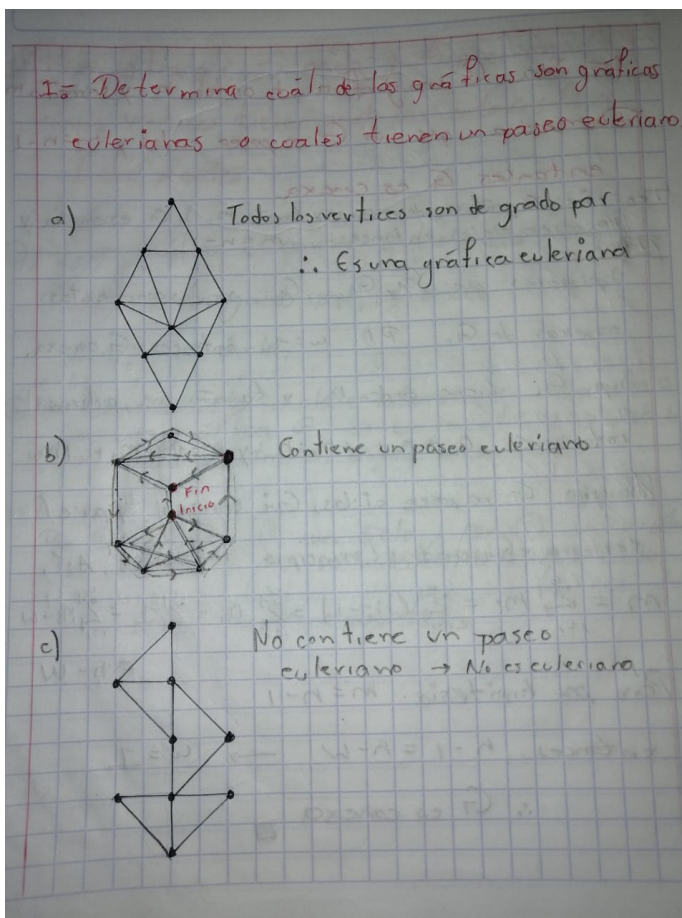 I.- Determina cuál de las gráficas son gráficas
eulerianas o cuales tienen un paseo euleriano
a) Todos los vertices son de grado par
∴ Es una gráfica euleriana
b) Contiene un paseo euleriano
Fin
Inicio
c) No contiene un paseo
euleriano → No es euleriana